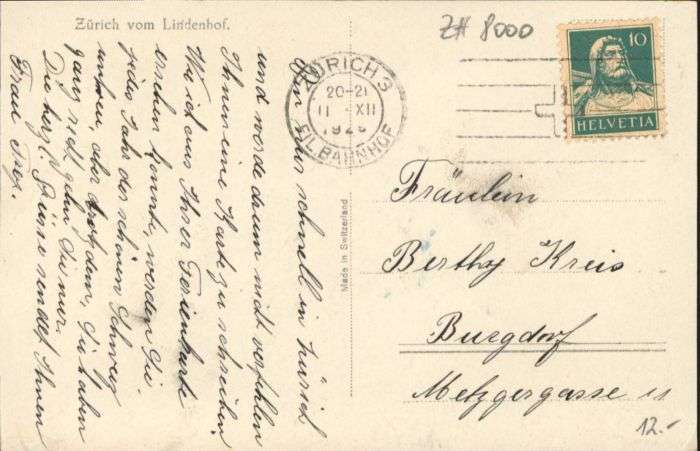 Zürich vom Lindenhof.
ZH 8000
10
HELVETIA
ZÜRICH 3
20-21
11 XII
FIL. BAHNHOF
Made in Switzerland
Bin nur schnell in Zürich
und werde darum nicht verfehlen
Ihnen eine Karte zu schreiben.
Wie ich aus Ihrer Ferienkarte
ersehen konnte, werden Sie
jedes Jahr der schönen Schweiz
aber trotzdem, Sie haben
ganz recht gehen Sie nur.
Die herzl. Grüsse sendet Ihnen
Frau
Fräulein
Berthy Kreis
Burgdorf
Metzgergasse 11
12.-